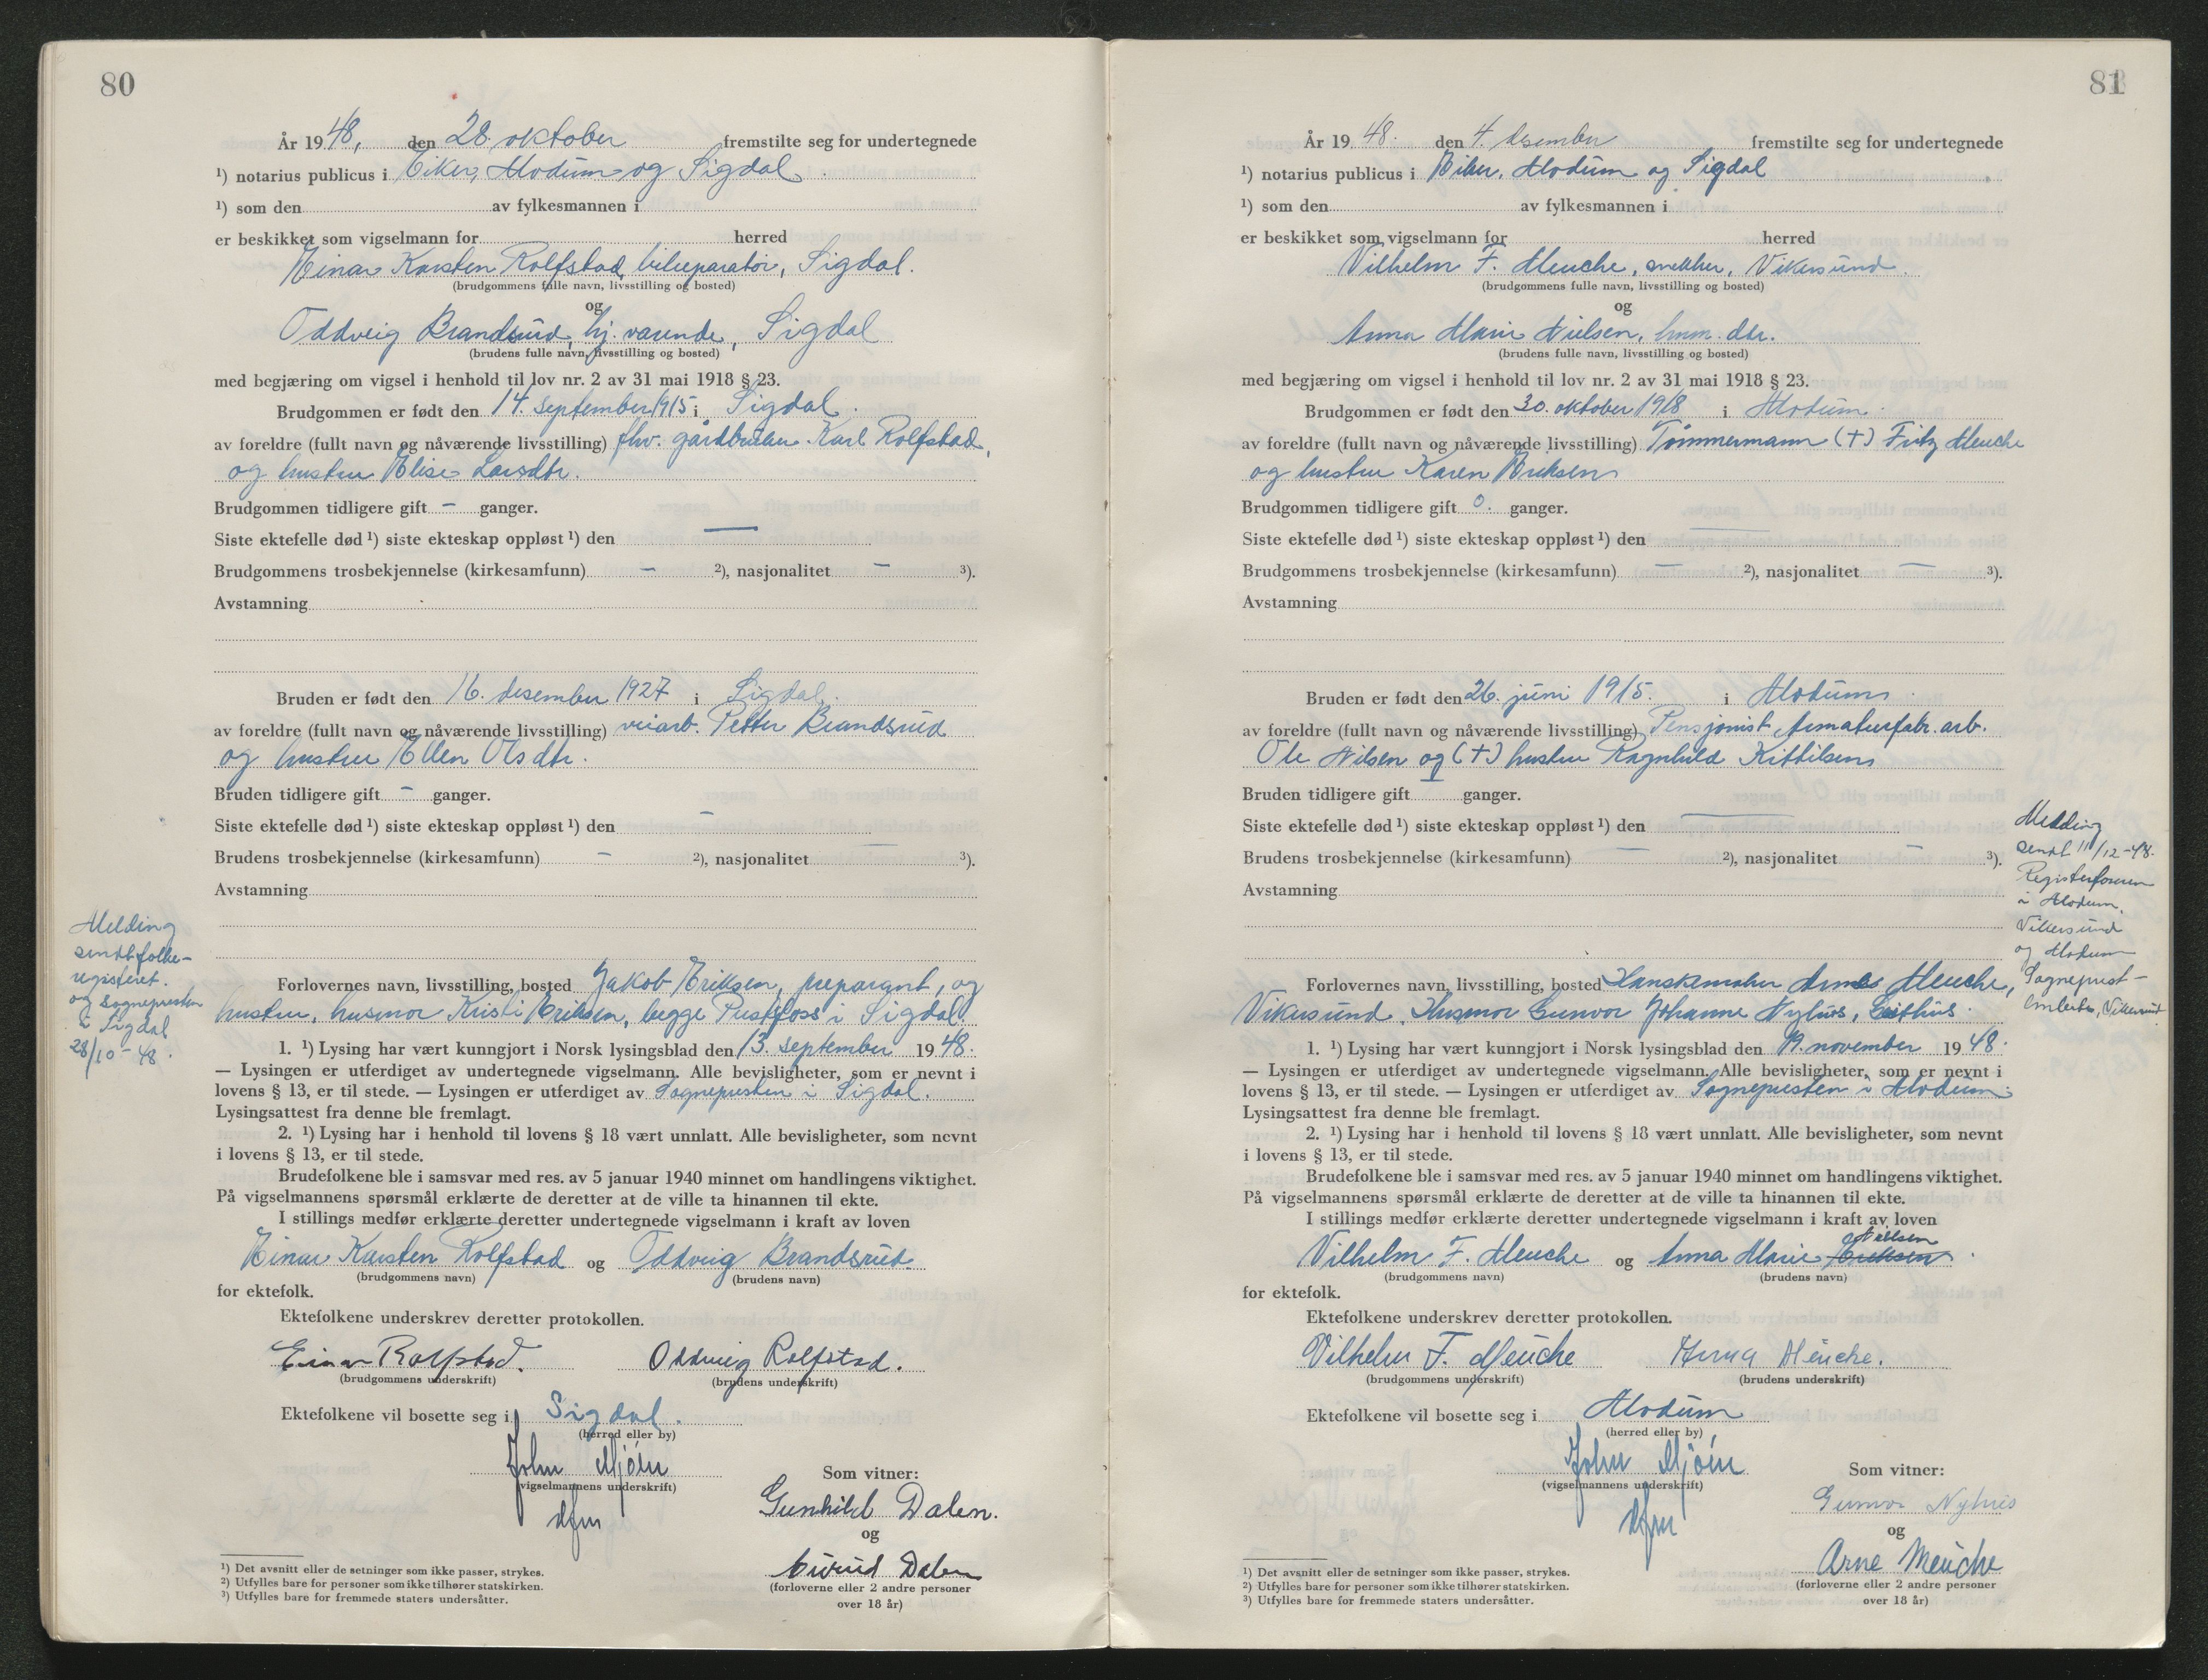 80
År 1948, den 28. oktober fremstilte seg for undertegnede
¹) notarius publicus i Eiker, Modum og Sigdal.
¹) som den av fylkesmannen i
er beskikket som vigselmann for herred
Einar Karsten Rolfstad, bilreparatør, Sigdal.
(brudgommens fulle navn, livsstilling og bosted)
og
Oddveig Brandsrud, hj. værende, Sigdal
(brudens fulle navn, livsstilling og bosted)
med begjæring om vigsel i henhold til lov nr. 2 av 31 mai 1918 § 23.
Brudgommen er født den 14. september 1915 i Sigdal.
av foreldre (fullt navn og nåværende livsstilling) fhv. gårdbruker Karl Rolfstad,
og hustru Elise Larsdtr.
Brudgommen tidligere gift – ganger.
Siste ektefelle død ¹) siste ekteskap oppløst ¹) den —
Brudgommens trosbekjennelse (kirkesamfunn) – ²), nasjonalitet – ³).
Avstamning
Bruden er født den 16. desember 1927 i Sigdal.
av foreldre (fullt navn og nåværende livsstilling) veiarb. Petter Brandsrud
og hustru Ellen Olsdtr.
Bruden tidligere gift – ganger.
Siste ektefelle død ¹) siste ekteskap oppløst ¹) den –
Brudens trosbekjennelse (kirkesamfunn) – ²), nasjonalitet — ³).
Avstamning
Melding
sendt folke-
registeret
og sognepresten
i Sigdal
28/10-48.
Forlovernes navn, livsstilling, bosted Jakob Eriksen, preparant, og
hustru, husmor Kristi Eriksen, begge Prestfoss i Sigdal
1. ¹) Lysing har vært kunngjort i Norsk lysingsblad den 13. september 1948.
— Lysingen er utferdiget av undertegnede vigselmann. Alle bevisligheter, som er nevnt i
lovens § 13, er til stede. — Lysingen er utferdiget av Sognepresten i Sigdal.
Lysingsattest fra denne ble fremlagt.
2. ¹) Lysing har i henhold til lovens § 18 vært unnlatt. Alle bevisligheter, som nevnt
i lovens § 13, er til stede.
Brudefolkene ble i samsvar med res. av 5 januar 1940 minnet om handlingens viktighet.
På vigselmannens spørsmål erklærte de deretter at de ville ta hinannen til ekte.
I stillings medfør erklærte deretter undertegnede vigselmann i kraft av loven
Einar Karsten Rolfstad og Oddveig Brandsrud.
(brudgommens navn) (brudens navn)
for ektefolk.
Ektefolkene underskrev deretter protokollen.
Einar Rolfstad. Oddveig Rolfstad.
(brudgommens underskrift) (brudens underskrift)
Ektefolkene vil bosette seg i Sigdal.
(herred eller by)
John Mjøin
(vigselmannens underskrift)
dfm
Som vitner:
Gunhild Dalen.
og
Eivind Dalen
(forloverne eller 2 andre personer
over 18 år)
¹) Det avsnitt eller de setninger som ikke passer, strykes.
²) Utfylles bare for personer som ikke tilhører statskirken.
³) Utfylles bare for fremmede staters undersåtter.
81
År 1948. den 4. desember fremstilte seg for undertegnede
¹) notarius publicus i Eiker, Modum og Sigdal
¹) som den av fylkesmannen i
er beskikket som vigselmann for herred
Vilhelm F. Meuche, snekker, Vikersund.
(brudgommens fulle navn, livsstilling og bosted)
og
Anna Marie Nielsen, hmm. dtr.
(brudens fulle navn, livsstilling og bosted)
med begjæring om vigsel i henhold til lov nr. 2 av 31 mai 1918 § 23.
Brudgommen er født den 30. oktober 1918 i Modum.
av foreldre (fullt navn og nåværende livsstilling) Tømmermann (†) Fritz Meuche
og hustru Karen Eriksen
Brudgommen tidligere gift 0. ganger.
Siste ektefelle død ¹) siste ekteskap oppløst ¹) den —
Brudgommens trosbekjennelse (kirkesamfunn) — ²), nasjonalitet — ³).
Avstamning
Bruden er født den 26. juni 1915. i Modum.
av foreldre (fullt navn og nåværende livsstilling) Pensjonist, Armaturfabr. arb.
Ole Nilsen og (†) hustru Ragnhild Kittilsen
Bruden tidligere gift – ganger.
Siste ektefelle død ¹) siste ekteskap oppløst ¹) den —
Brudens trosbekjennelse (kirkesamfunn) — ²), nasjonalitet – ³).
Avstamning
Melding
sendt 11/12-48.
Registerføreren
i Modum,
Vikersund
og Modum
Sogneprest-
embete, Vikersund.
Forlovernes navn, livsstilling, bosted Hanskemaker Arne Meuche,
Vikersund. Husmor Gunvor Johanne Nyhus, Geithus.
1. ¹) Lysing har vært kunngjort i Norsk lysingsblad den 19. november 1948.
— Lysingen er utferdiget av undertegnede vigselmann. Alle bevisligheter, som er nevnt i
lovens § 13, er til stede. — Lysingen er utferdiget av Sognepresten i Modum.
Lysingsattest fra denne ble fremlagt.
2. ¹) Lysing har i henhold til lovens § 18 vært unnlatt. Alle bevisligheter, som nevnt
i lovens § 13, er til stede.
Brudefolkene ble i samsvar med res. av 5 januar 1940 minnet om handlingens viktighet.
På vigselmannens spørsmål erklærte de deretter at de ville ta hinannen til ekte.
I stillings medfør erklærte deretter undertegnede vigselmann i kraft av loven
Nielsen
Vilhelm F. Meuche og Anna Marie Eriksen.
(brudgommens navn) (brudens navn)
for ektefolk.
Ektefolkene underskrev deretter protokollen.
Vilhelm F. Meuche Anna Meuche.
(brudgommens underskrift) (brudens underskrift)
Ektefolkene vil bosette seg i Modum
(herred eller by)
John Mjøin
(vigselmannens underskrift)
dfm
Som vitner:
Gunvor Nyhus
og
Arne Meuche
(forloverne eller 2 andre personer
over 18 år)
¹) Det avsnitt eller de setninger som ikke passer, strykes.
²) Utfylles bare for personer som ikke tilhører statskirken.
³) Utfylles bare for fremmede staters undersåtter.